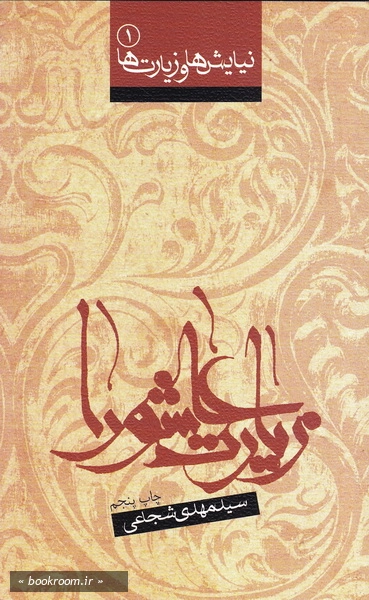 نیایش‌ها و زیارت‌ها
۱
زیارت عاشورا
چاپ پنجم
سید مهدی شجاعی
« bookroom.ir »